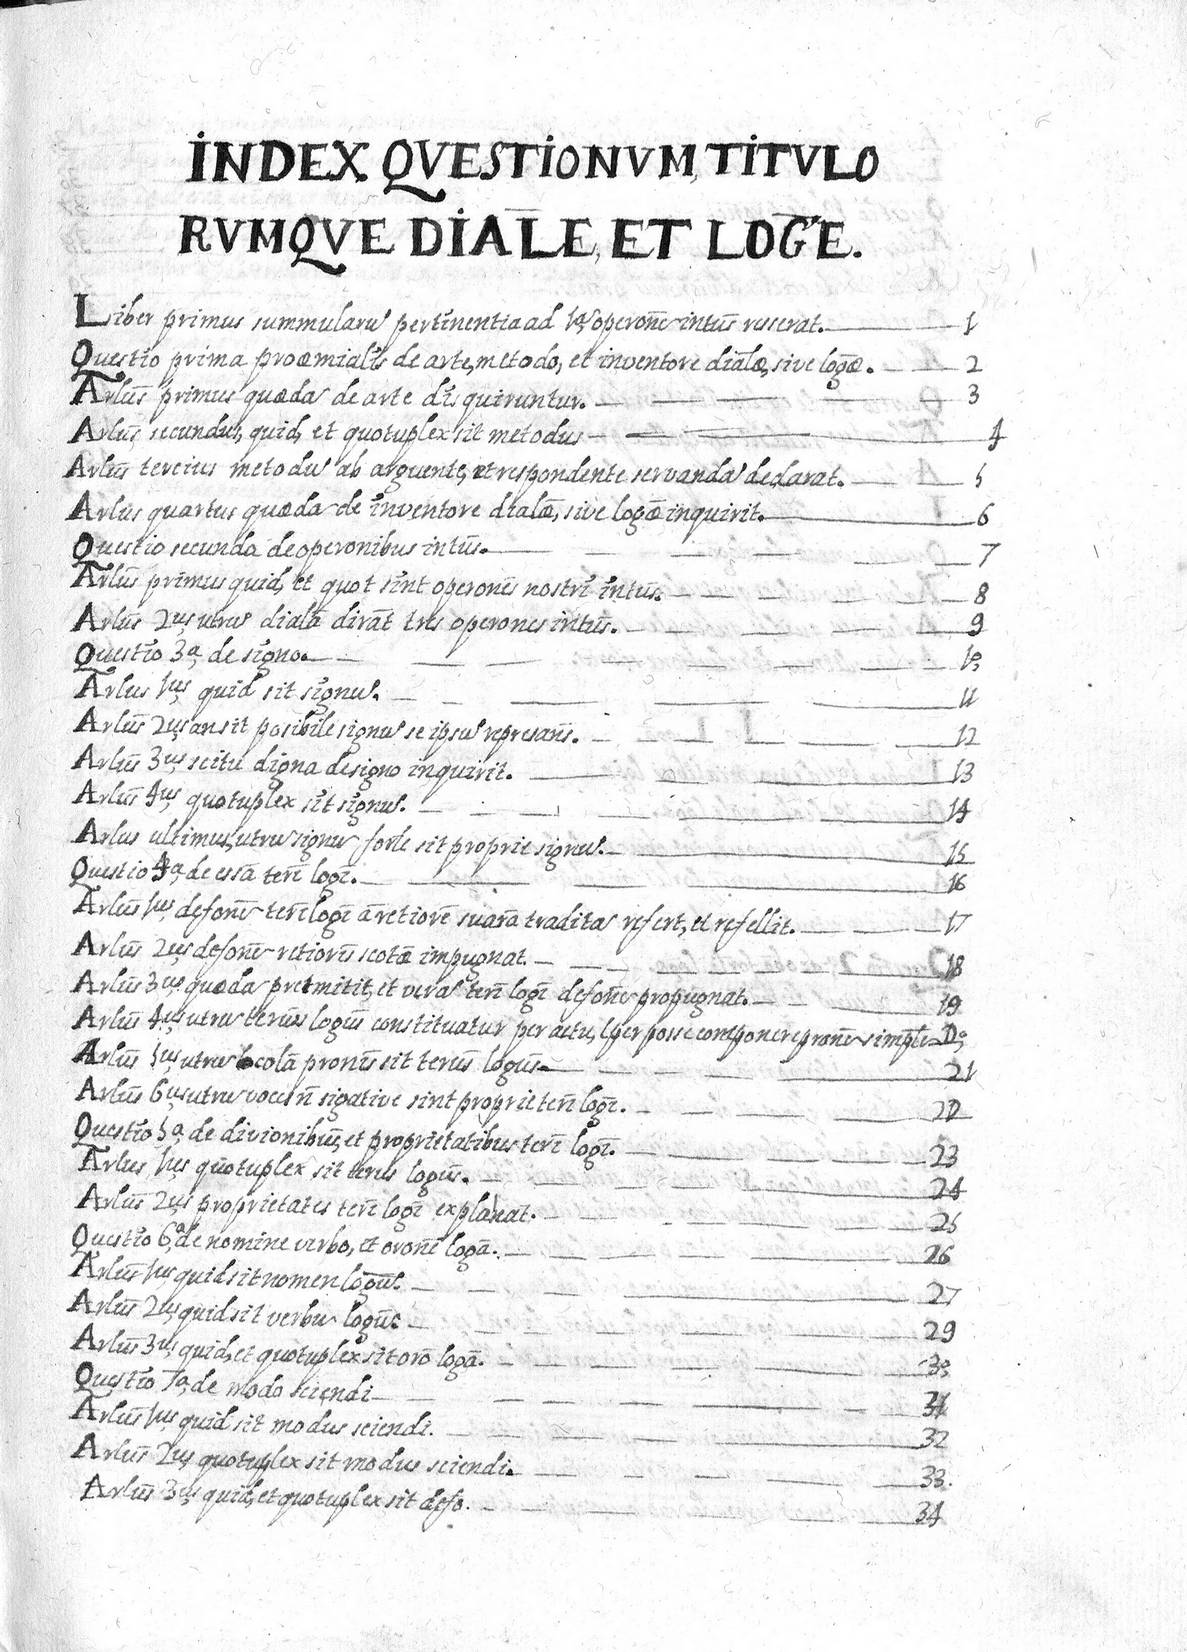 INDEX QVESTIONVM, TITVLO
RVMQVE DIALE, ET LOGE.
Liber primus summularũ pertinentia ad 1ã operonẽ intũs reserat. 1
Questio prima proœmialis de arte, metodo, et inventore dialæ, sive logæ. 2
Arlus primus quæda de arte disquiruntur. 3
Arlus secundus, quid, et quotuplex sit metodus 4
Arlus tercius metodũ ab arguente, et respondente servandã declarat. 5
Arlus quartus quæda de inventore dialæ, sive logæ inquirit. 6
Questio secunda de operonibus intũs. 7
Arlus primus quid, et quot sint operones nostri intũs. 8
Arlus 2us utrũ diala dirat tres operones intũs. 9
Questio 3a de signo. 10
Arlus 1us quid sit signũ. 11
Arlus 2us an sit posibile signũ se ipsũ represans. 12
Arlus 3us scitu digna de signo inquirit. 13
Arlus 4us quotuplex sit signũ. 14
Arlus ultimus, utrũ signũ forle sit proprie signũ. 15
Questio 4a de essa teri logi. 16
Arlus 1us defone teri logi a retiore suara traditas refert, et refellit. 17
Arlus 2us defone retioris scotæ impugnat. 18
Arlus 3us quæda premitit, et verã teri logi defone propugnat. 19
Arlus 4us utrũ terus logus constituatur per actu, l per posse componere prone simple 20
Arlus 5us utrũ cola pronis sit terus logus. 21
Arlus 6us utrũ voces ñ sigative sint proprie teri logi. 22
Questio 5a de divionibus, et proprietatibus teri logi. 23
Arlus 1us quotuplex sit terus logus. 24
Arlus 2us proprietates teri logi explanat. 25
Questio 6a de nomine verbo, et orone loga. 26
Arlus 1us quid sit nomen logũ. 27
Arlus 2us quid sit verbũ logũ. 29
Arlus 3us quid, et quotuplex sit oro loga. 30
Questio 7a de modo sciendi 31
Arlus 1us quid sit modus sciendi. 32
Arlus 2us quotuplex sit modus sciendi. 33.
Arlus 3us quid, et quotuplex sit defo. 34